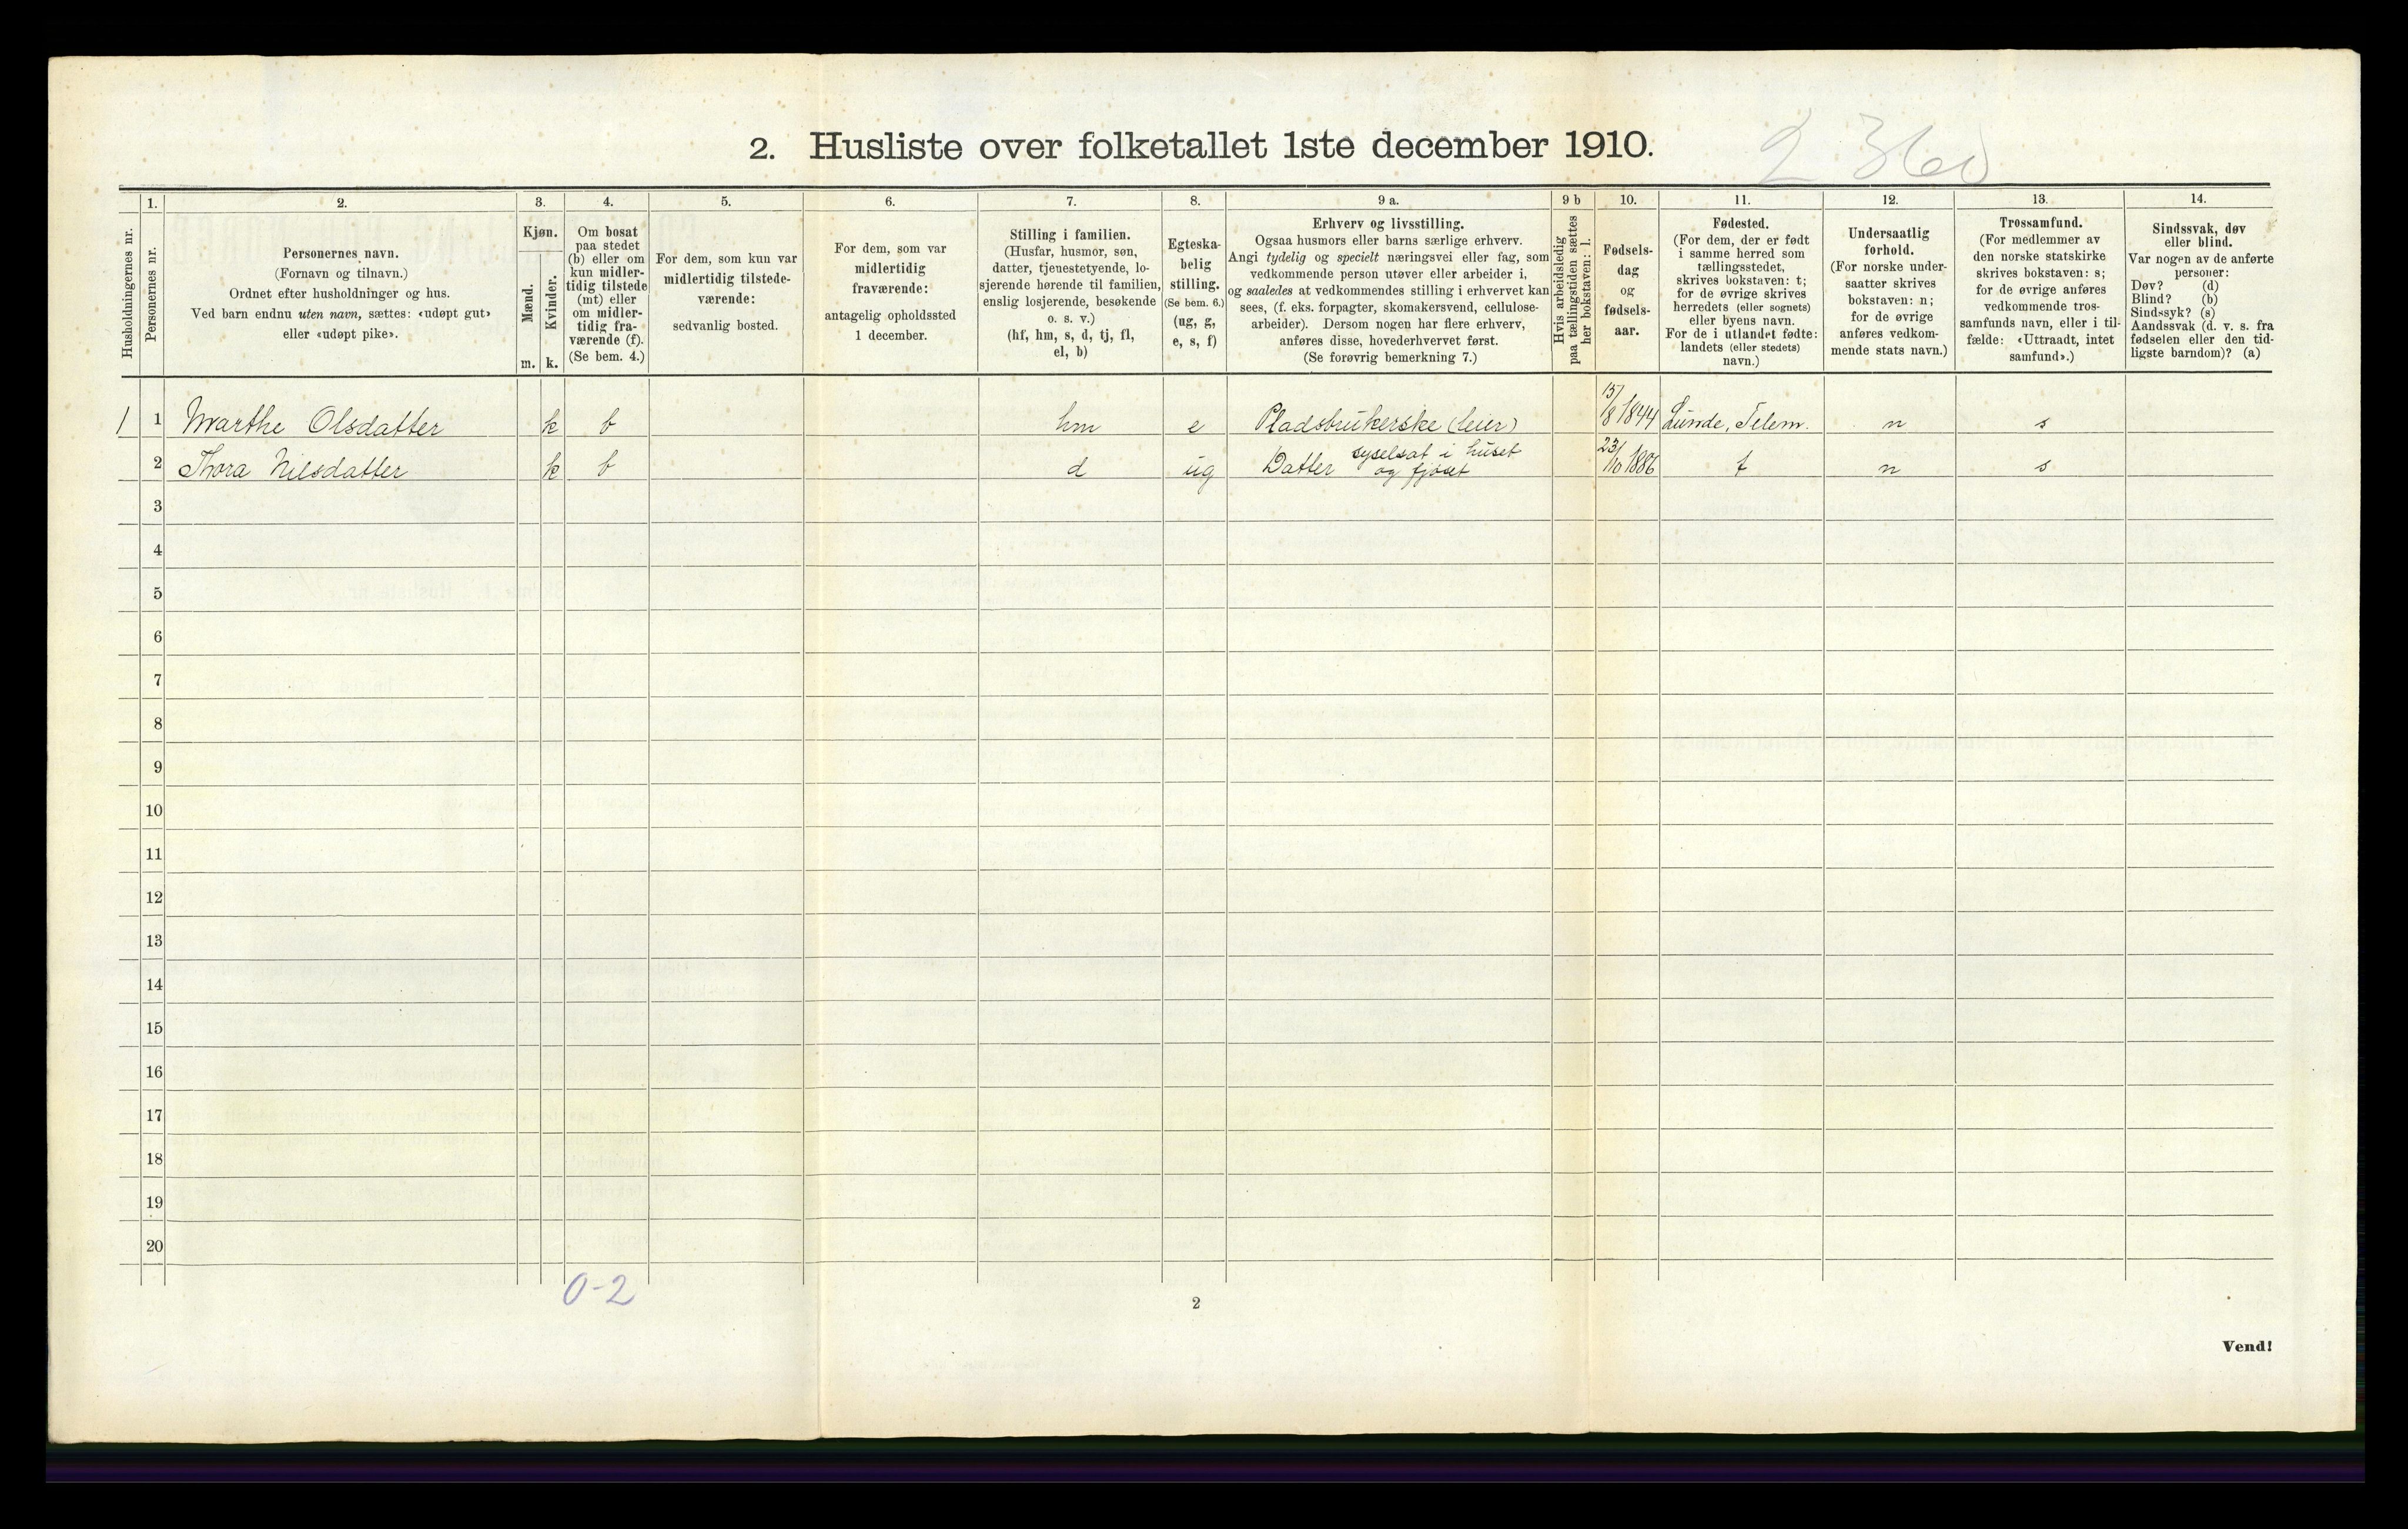 2. Husliste over folketallet 1ste december 1910.
2 360
1. 2. 3. 4. 5. 6. 7. 8. 9 a. 9 b 10. 11. 12. 13. 14.
Husholdningernes nr.
Personernes nr.
Personernes navn.
(Fornavn og tilnavn.)
Ordnet efter husholdninger og hus.
Ved barn endnu uten navn, sættes: «udøpt gut»
eller «udøpt pike».
Kjøn.
Mænd.
Kvinder.
m. k.
Om bosat
paa stedet
(b) eller om
kun midler-
tidig tilstede
(mt) eller
om midler-
tidig fra-
værende (f).
(Se bem. 4.)
For dem, som kun var
midlertidig tilstede-
værende:
sedvanlig bosted.
For dem, som var
midlertidig
fraværende:
antagelig opholdssted
1 december.
Stilling i familien.
(Husfar, husmor, søn,
datter, tjenestetyende, lo-
sjerende hørende til familien,
enslig losjerende, besøkende
o. s. v.)
(hf, hm, s, d, tj, fl,
el, b)
Egteska-
belig
stilling.
(Se bem. 6.)
(ug, g,
e, s, f)
Erhverv og livsstilling.
Ogsaa husmors eller barns særlige erhverv.
Angi tydelig og specielt næringsvei eller fag, som
vedkommende person utøver eller arbeider i,
og saaledes at vedkommendes stilling i erhvervet kan
sees, (f. eks. forpagter, skomakersvend, cellulose-
arbeider). Dersom nogen har flere erhverv,
anføres disse, hovederhvervet først.
(Se forøvrig bemerkning 7.)
Hvis arbeidsledig
paa tællingstiden sættes
her bokstaven: l.
Fødsels-
dag
og
fødsels-
aar.
Fødested.
(For dem, der er født
i samme herred som
tællingsstedet,
skrives bokstaven: t;
for de øvrige skrives
herredets (eller sognets)
eller byens navn.
For de i utlandet fødte:
landets (eller stedets)
navn.)
Undersaatlig
forhold.
(For norske under-
saatter skrives
bokstaven: n;
for de øvrige
anføres vedkom-
mende stats navn.)
Trossamfund.
(For medlemmer av
den norske statskirke
skrives bokstaven: s;
for de øvrige anføres
vedkommende tros-
samfunds navn, eller i til-
fælde: «Uttraadt, intet
samfund».)
Sindssvak, døv
eller blind.
Var nogen av de anførte
personer:
Døv? (d)
Blind? (b)
Sindssyk? (s)
Aandssvak (d. v. s. fra
fødselen eller den tid-
ligste barndom)? (a)
1 1 Marthe Olsdatter k b hm e Pladsbrukerske (leier) 15/8 1844 Lunde, Telem. n s
2 Thora Nilsdatter k b d ug Datter syselsat i huset og fjøset 23/10 1886 t n s
3
4
5
6
7
8
9
10
11
12
13
14
15
16
17
18
19
20
0-2
2
Vend!